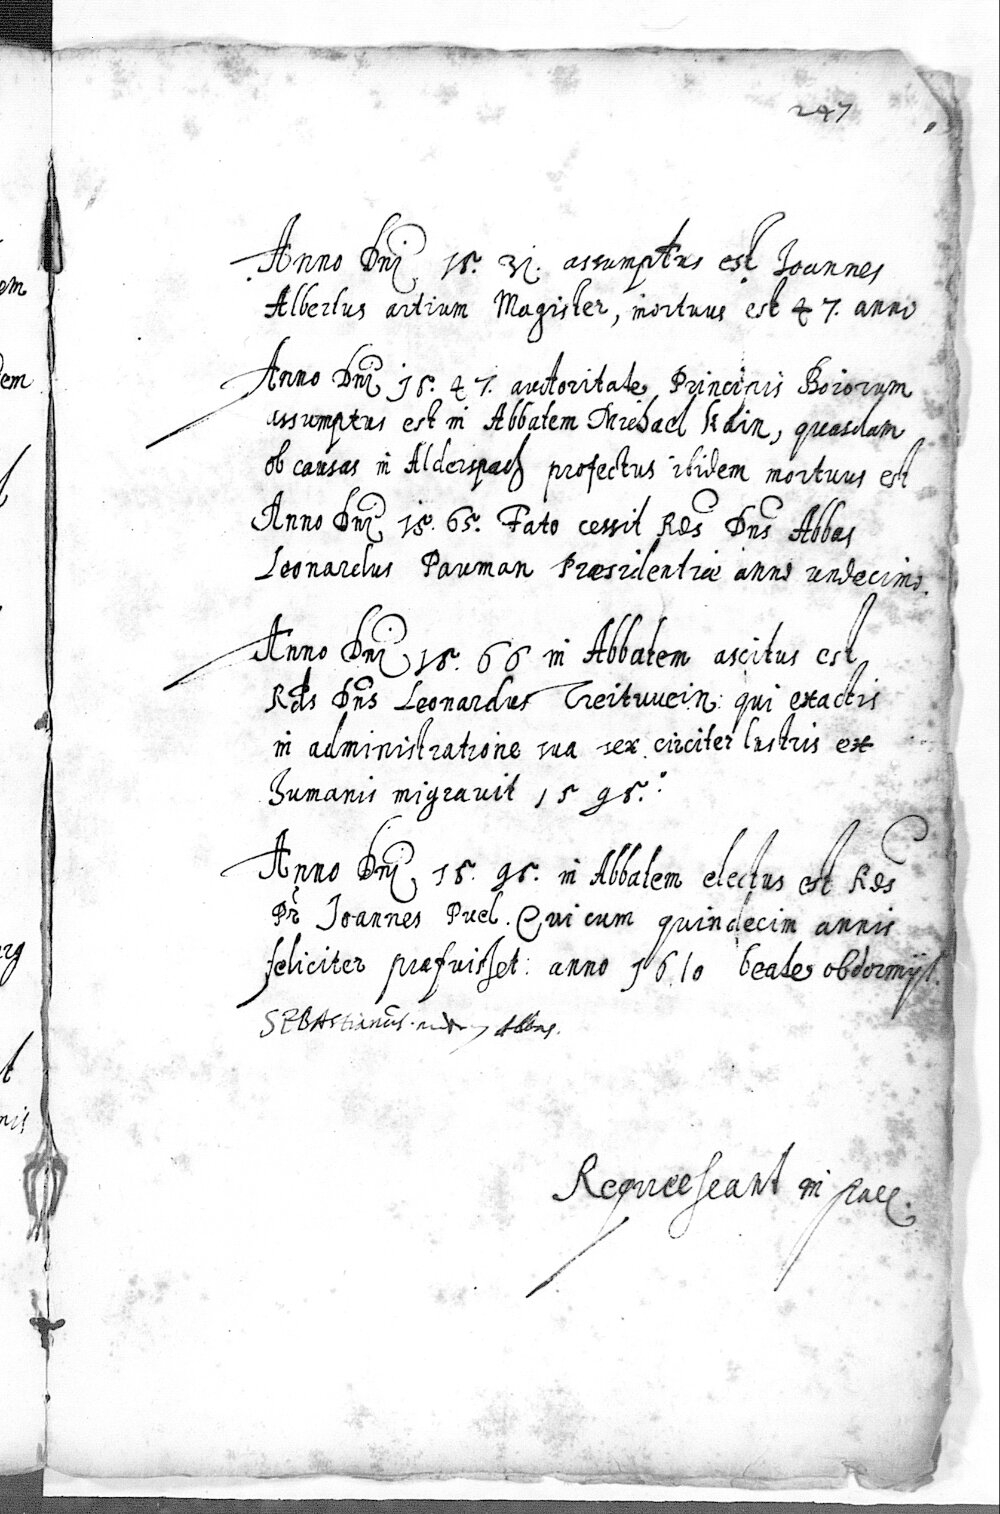 247
Anno Dñi 15. 31. assumptus est Joannes
Albertus artium Magister, mortuus est 47. anno
Anno Dñi 15. 47. auctoritate Principis Boiorum
assumptus est in Abbatem Michael Kain, quasdam
ob causas in Alderspach profectus ibidem mortuus est
Anno Dñi 15. 65. Fato cessit Rds Dns Abbas
Leonardus Pauman Præsidentiæ anno undecimo.
Anno Dñi 15. 66 in Abbatem ascitus est
Rds Dns Leonardus Treituuein: qui exactis
in administratione sua sex circiter lustris ex
humanis migravit 1595.
Anno Dñi 15. 95. in Abbatem electus est Rds
Pr Joannes Puel. Qui cum quindecim annis
feliciter præfuisset: anno 1610 beate obdormijt.
SEBAstianus Abbas.
Requiescant in pace.